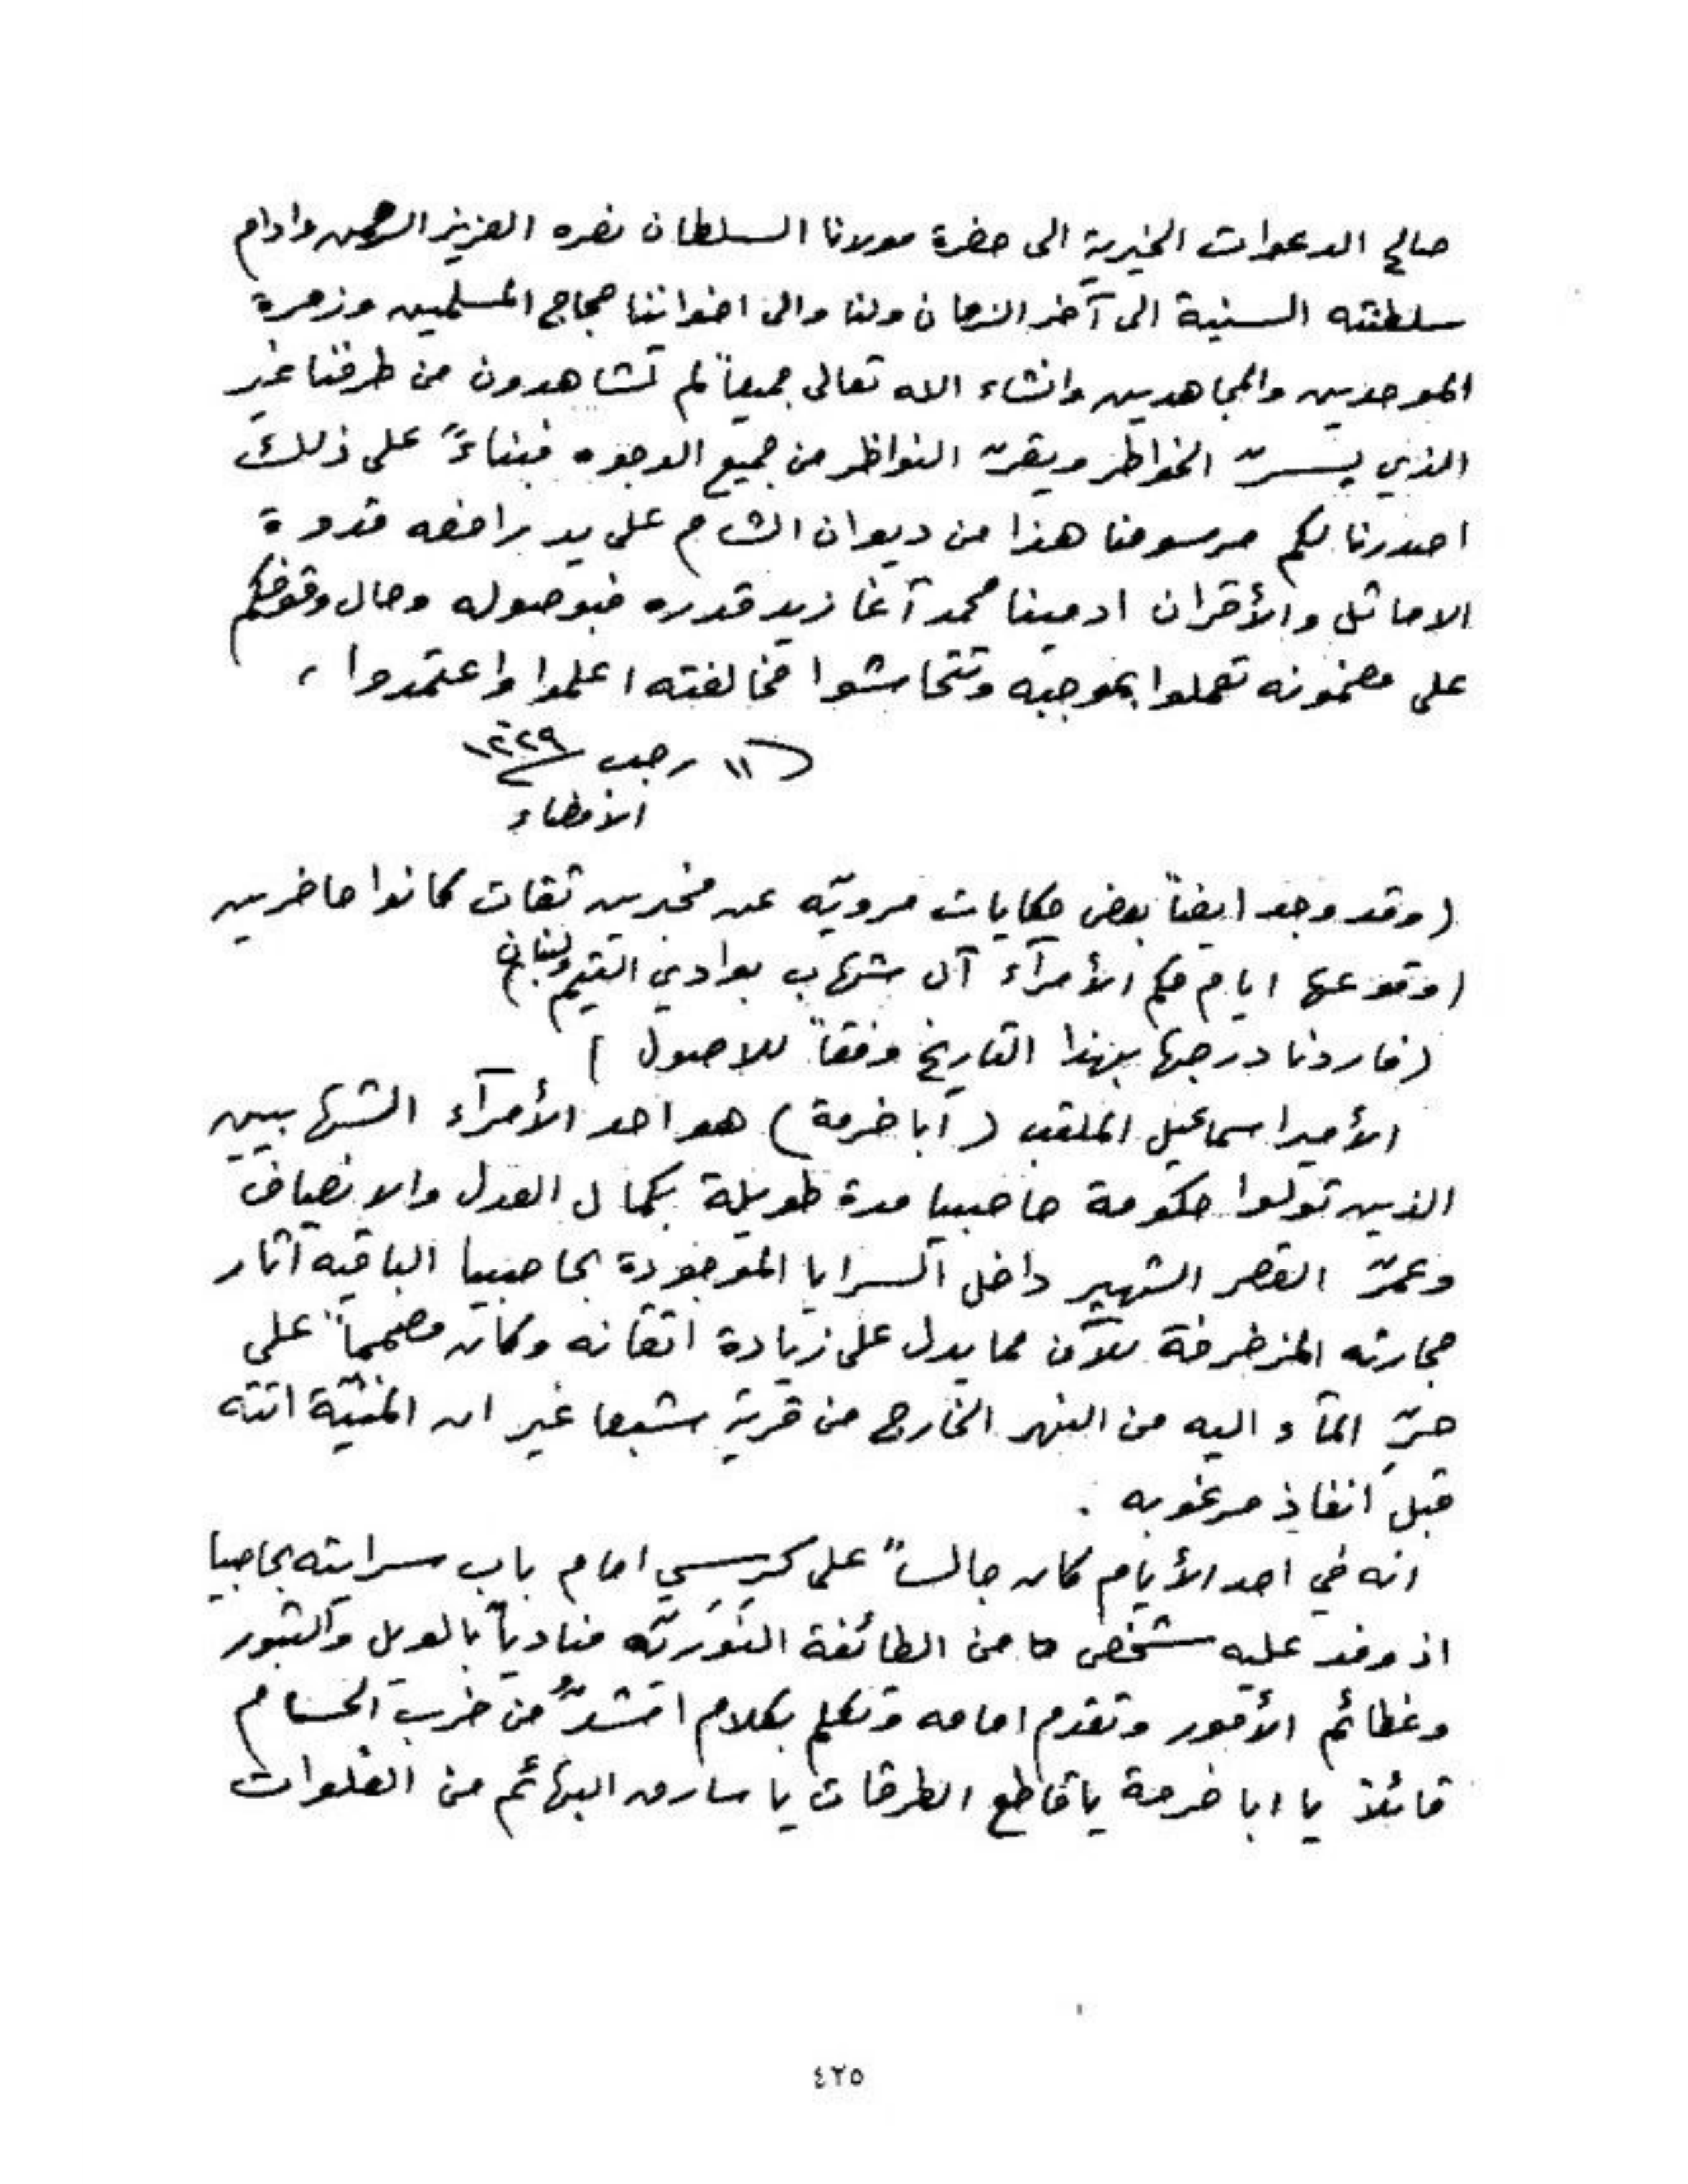 صالح الدعوات الخيرية الى حضرة مولانا السلطان نصره العزيز الرحمن وادام
سلطنته السنية الى آخر الزمان ولنا والى اخواننا حجاج المسلمين وزمرة
الموحدين والمجاهدين وانشاء الله تعالى جميعاً لم تشاهدون من طرفنا غير
الذي يسرّ الخواطر ويقرّ النواظر من جميع الوجوه فبناءً على ذلك
اصدرنا لكم مرسومنا هذا من ديوان الشام على يد رافعه قدوة
الاماثل والأقران ادمينا محمد آغا زيد قدره فبوصوله وحال وقوفكم
على مضمونه تعملوا بموجبه وتتحاشوا مخالفته اعلموا واعتمدوا ،
١١ رجب ١٢٢٩
الامضاء
( وقد وجد ايضاً بعض حكايات مرويّه عن مخبرين ثقات كانوا حاضرين
( وقوعها ايام حكم الأمرآء آل شهاب بوادي التيم ولبنان
( فاردنا درجها بهذا التاريخ وفقاً للاصول )
الأمير اسماعيل الملقب ( ابا خرمة ) هو احد الأمرآء الشهابيين
الذين تولوا حكومة حاصبيا مدة طويلة بكمال العدل والانصاف
وعمّر القصر الشهير داخل السرايا الموجودة بحاصبيا الباقيه آثار
حجارته المزخرفة للآن مما يدل على زيادة اتقانه وكان مصمماً على
جرّ المآء اليه من النهر الخارج من قرية شبعا غير ان المنيّة اتته
قبل انفاذ مرغوبه .
انه في احد الأيام كان جالساً على كرسي امام باب سرايته بحاصبيا
اذ وفد عليه شخص ما من الطائفة النَوَريّه منادياً بالويل والثبور
وعظائم الأمور وتقدم امامه وتكلم بكلام اشدُّ من ضرب الحسام
قائلاً يا ابا خرمة يا قاطع الطرقات يا سارق البهائم من الفلوات
٤٢٥